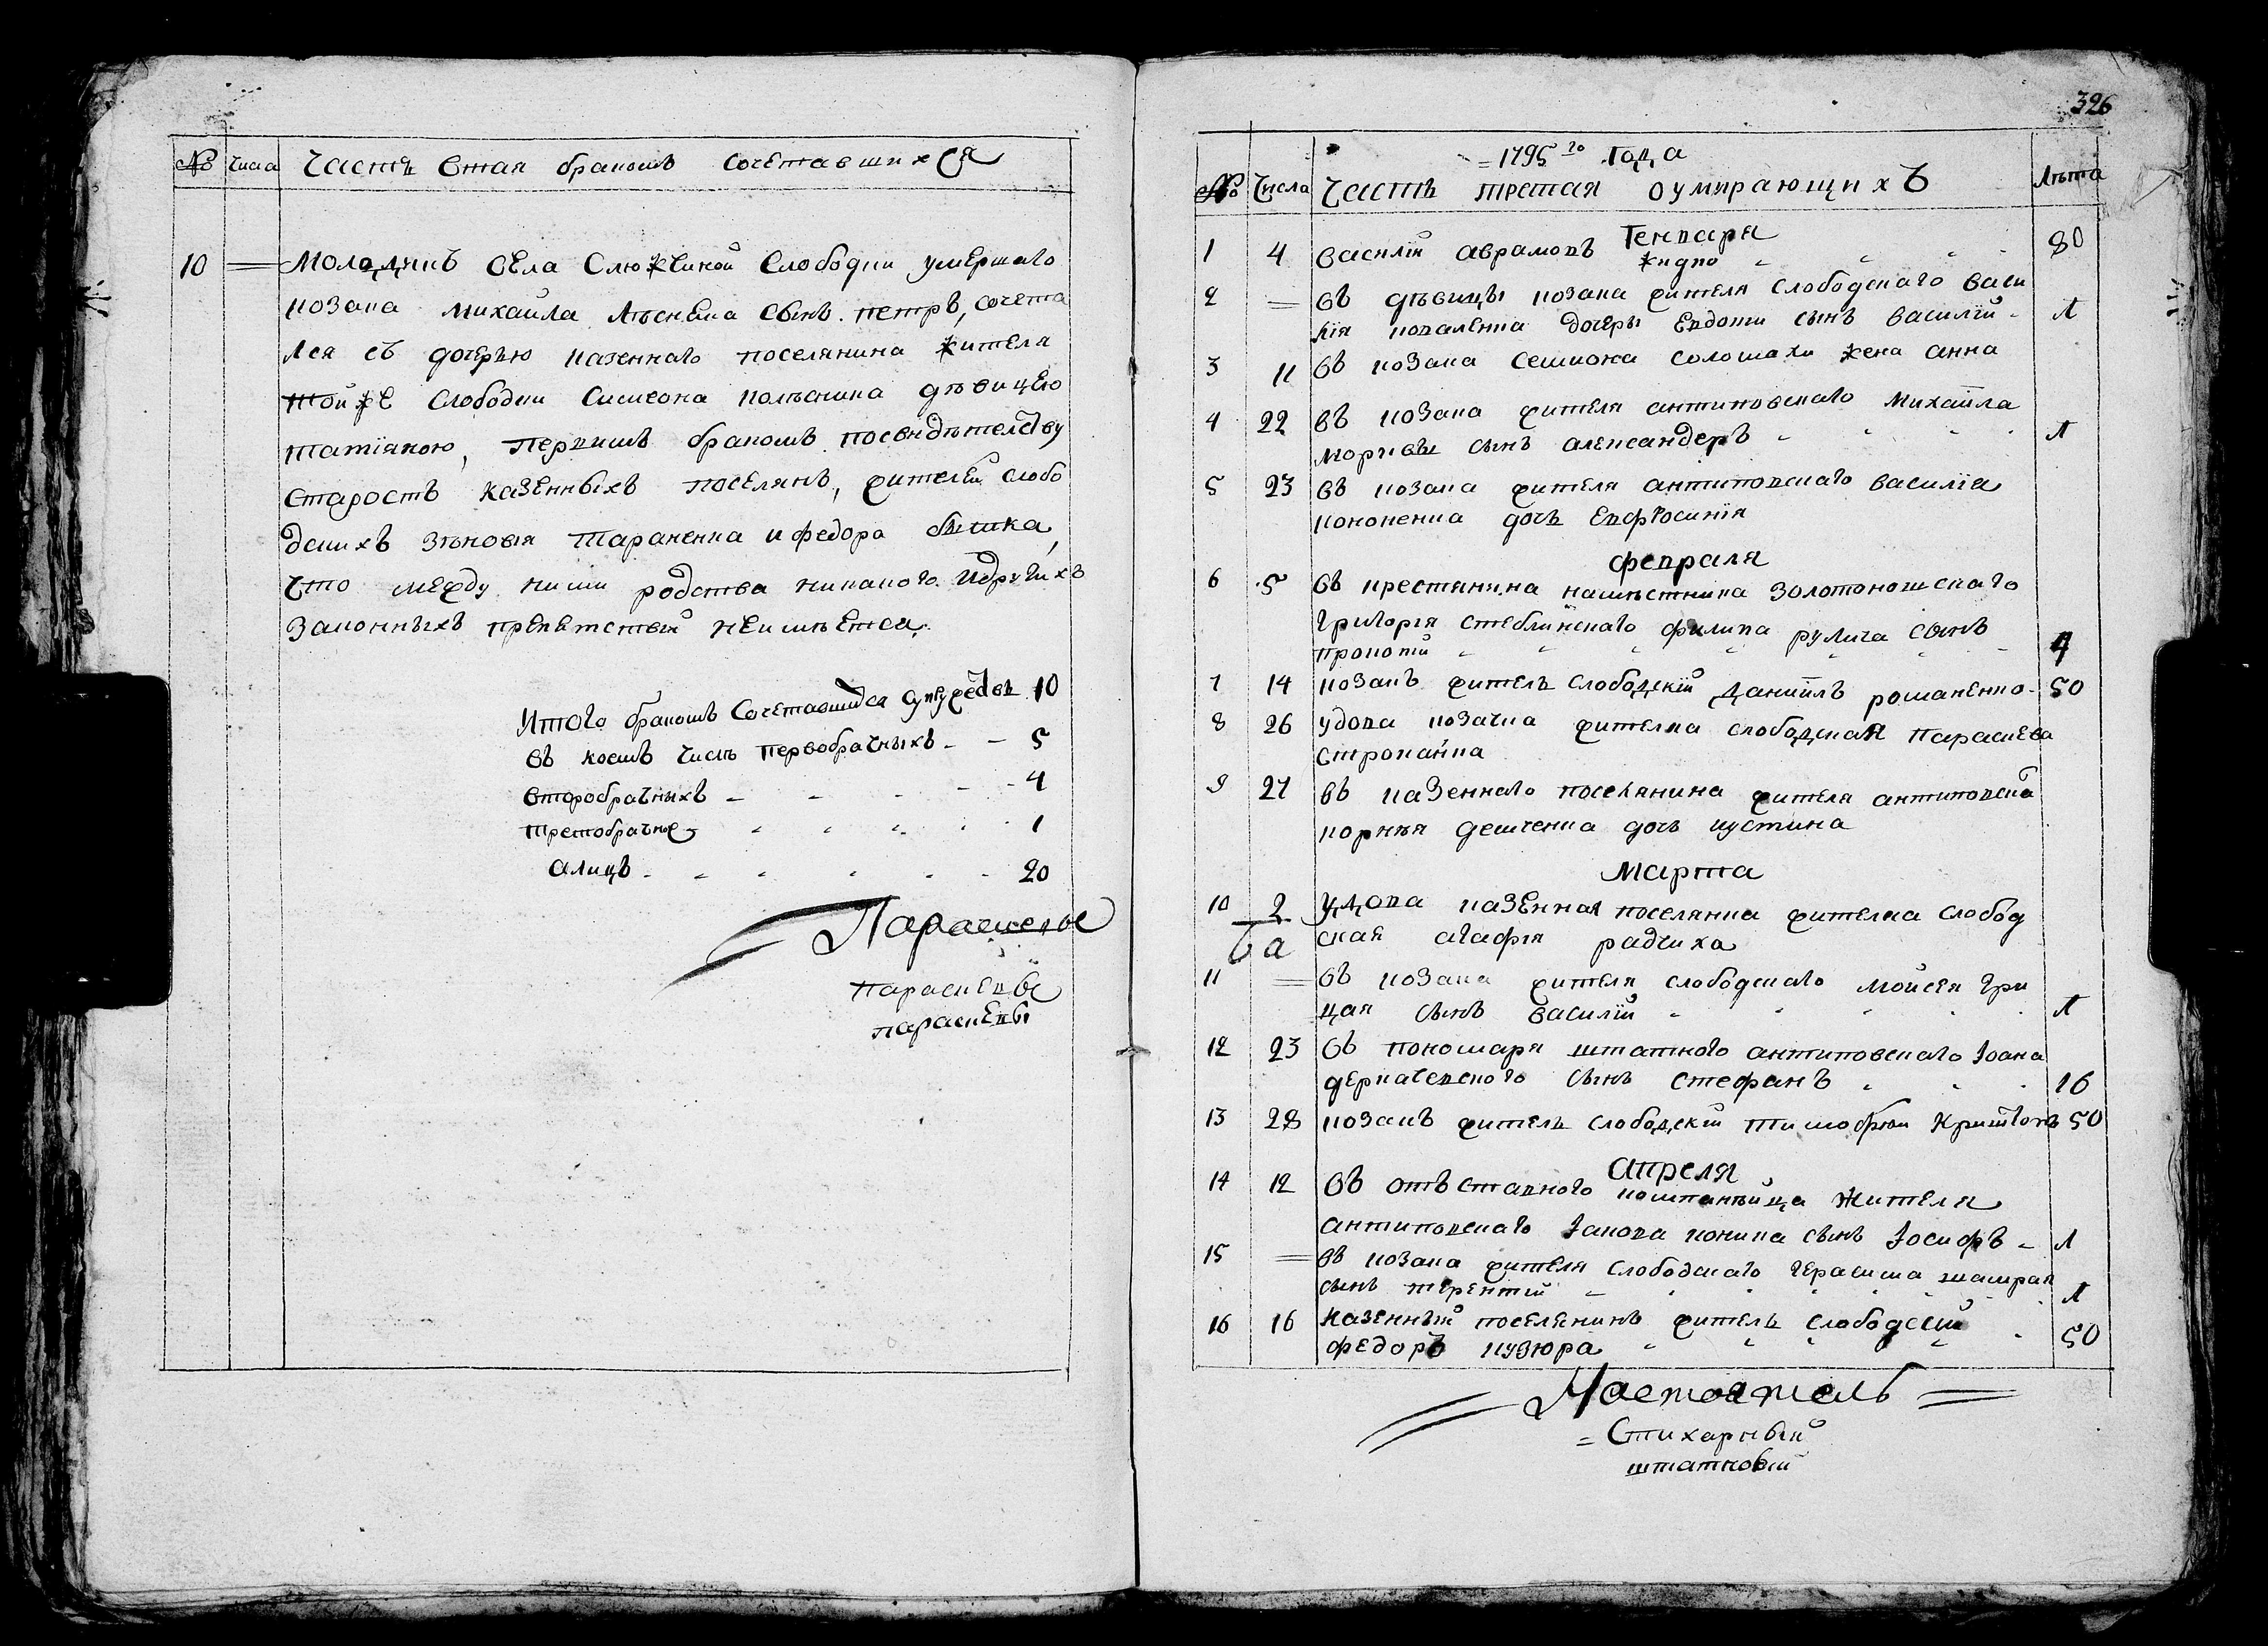 № Числа Часть Втая бракомъ сочетавшихся
10 Молодикъ села Слюжчиной Слободки умершаго
козака Михаила Лѣсняка сынъ петръ, сочета
лся съ дочерью казенного поселянина жителя
тойже слободки Симеона полѣсника дѣвицею
татіяною, первимъ бракомъ посвидѣтелству
старостъ казенныхъ поселянъ, жителей слобо
дскихъ Зѣновія тараненка и федора бышка,
что между ними родства никакого и других
законныхъ препятствий неимѣется.
Итого бракомъ Сочетавшихся супружествъ 10
въ коемъ числѣ первобрачныхъ 5
второбрачныхъ 4
третобрачное 1
а лицъ 20
параскевы
параскевы
326
1795 го Года
№ Числа Часть третая оумирающихъ Лѣта
Генваря
1 4 Василій аврамовъ 80
2 въ дѣвицы козака жителя слободского Васи
лія коваленка дочеры Евдоти сынъ Василій 1
3 11 въ козака семиона соломахи жена анна
4 22 въ козака жителя антиповского Михаила
сынъ александеръ 1
5 23 въ козака жителя антиповского василія
кононенка дочъ Евфросинія
февраля
6 5 въ крестянина намѣстника золотоношского
григорія стеблинского филипа рулича сынъ
прокопій 4
7 14 козакъ житель слободскій даніилъ романенко 50
8 26 удова козачка жителка слободская параскева
стропанка
9 27 въ казенного поселянина жителя антиповска
корнѣя демченка дочъ иустина
Марта
10 2 удова казенная поселянка жителка слобод
ская агафія радчиха
11 въ козака жителя слободского мойсея гри
цая сынъ василій 1
12 23 въ пономаря штатного антиповского Іоана
деркачевского сынъ стефанъ 16
13 28 козакъ житель слободскій тимофей 50
апреля
14 12 въ отъставного компанѣйца жителя
антиповского Іакова коника сынъ Іосифъ 1
15 въ козака жителя слободского герасима шамрая
сынъ терентій 1
16 16 казенный поселенинъ житель слободский
федоръ кузюра 50
Настоятель
Стихарный
штатный